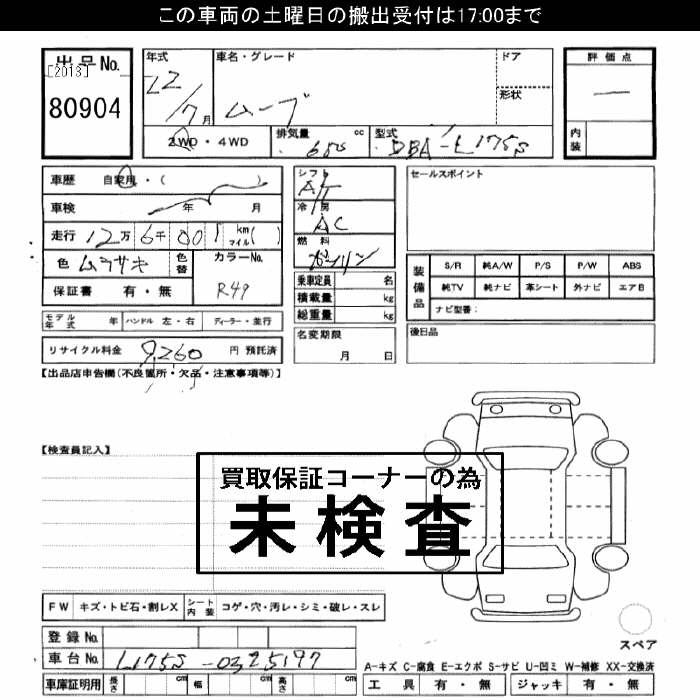 この車両の土曜日の搬出受付は17:00まで
出品No.
[2013]
80904
年式 22/7月
車名・グレード ムーブ
ドア
形状
2WD・4WD
排気量 cc
型式 DBA-L175S
評価点
内装
車歴 自家用・( )
車検 年 月
走行 12万6千001km マイル( )
色 ムラサキ 色替
カラーNo. R49
保証書 有・無
シフト AT
冷房 AC
燃料 ガソリン
乗車定員 名
積載量 kg
総重量 kg
セールスポイント
装備品 S/R 純A/W P/S P/W ABS
純TV 純ナビ 革シート 外ナビ エアB
ナビ型番:
モデル年式 年 ハンドル 左・右 ディーラー・並行
リサイクル料金 9,260 円 預託済
名変期限
月 日
後日品
【出品店申告欄(不良箇所・欠品・注意事項等)】
【検査員記入】
買取保証コーナーの為
未検査
FW キズ・トビ石・割レX シート内装 コゲ・穴・汚レ・シミ・破レ・スレ
登録No.
車台No. L175S-0325197
車庫証明用 長さ cm 幅 cm 高さ cm
スペア
A-キズ C-腐食 E-エクボ S-サビ U-凹ミ W-補修 XX-交換済
工具 有・無 ジャッキ 有・無